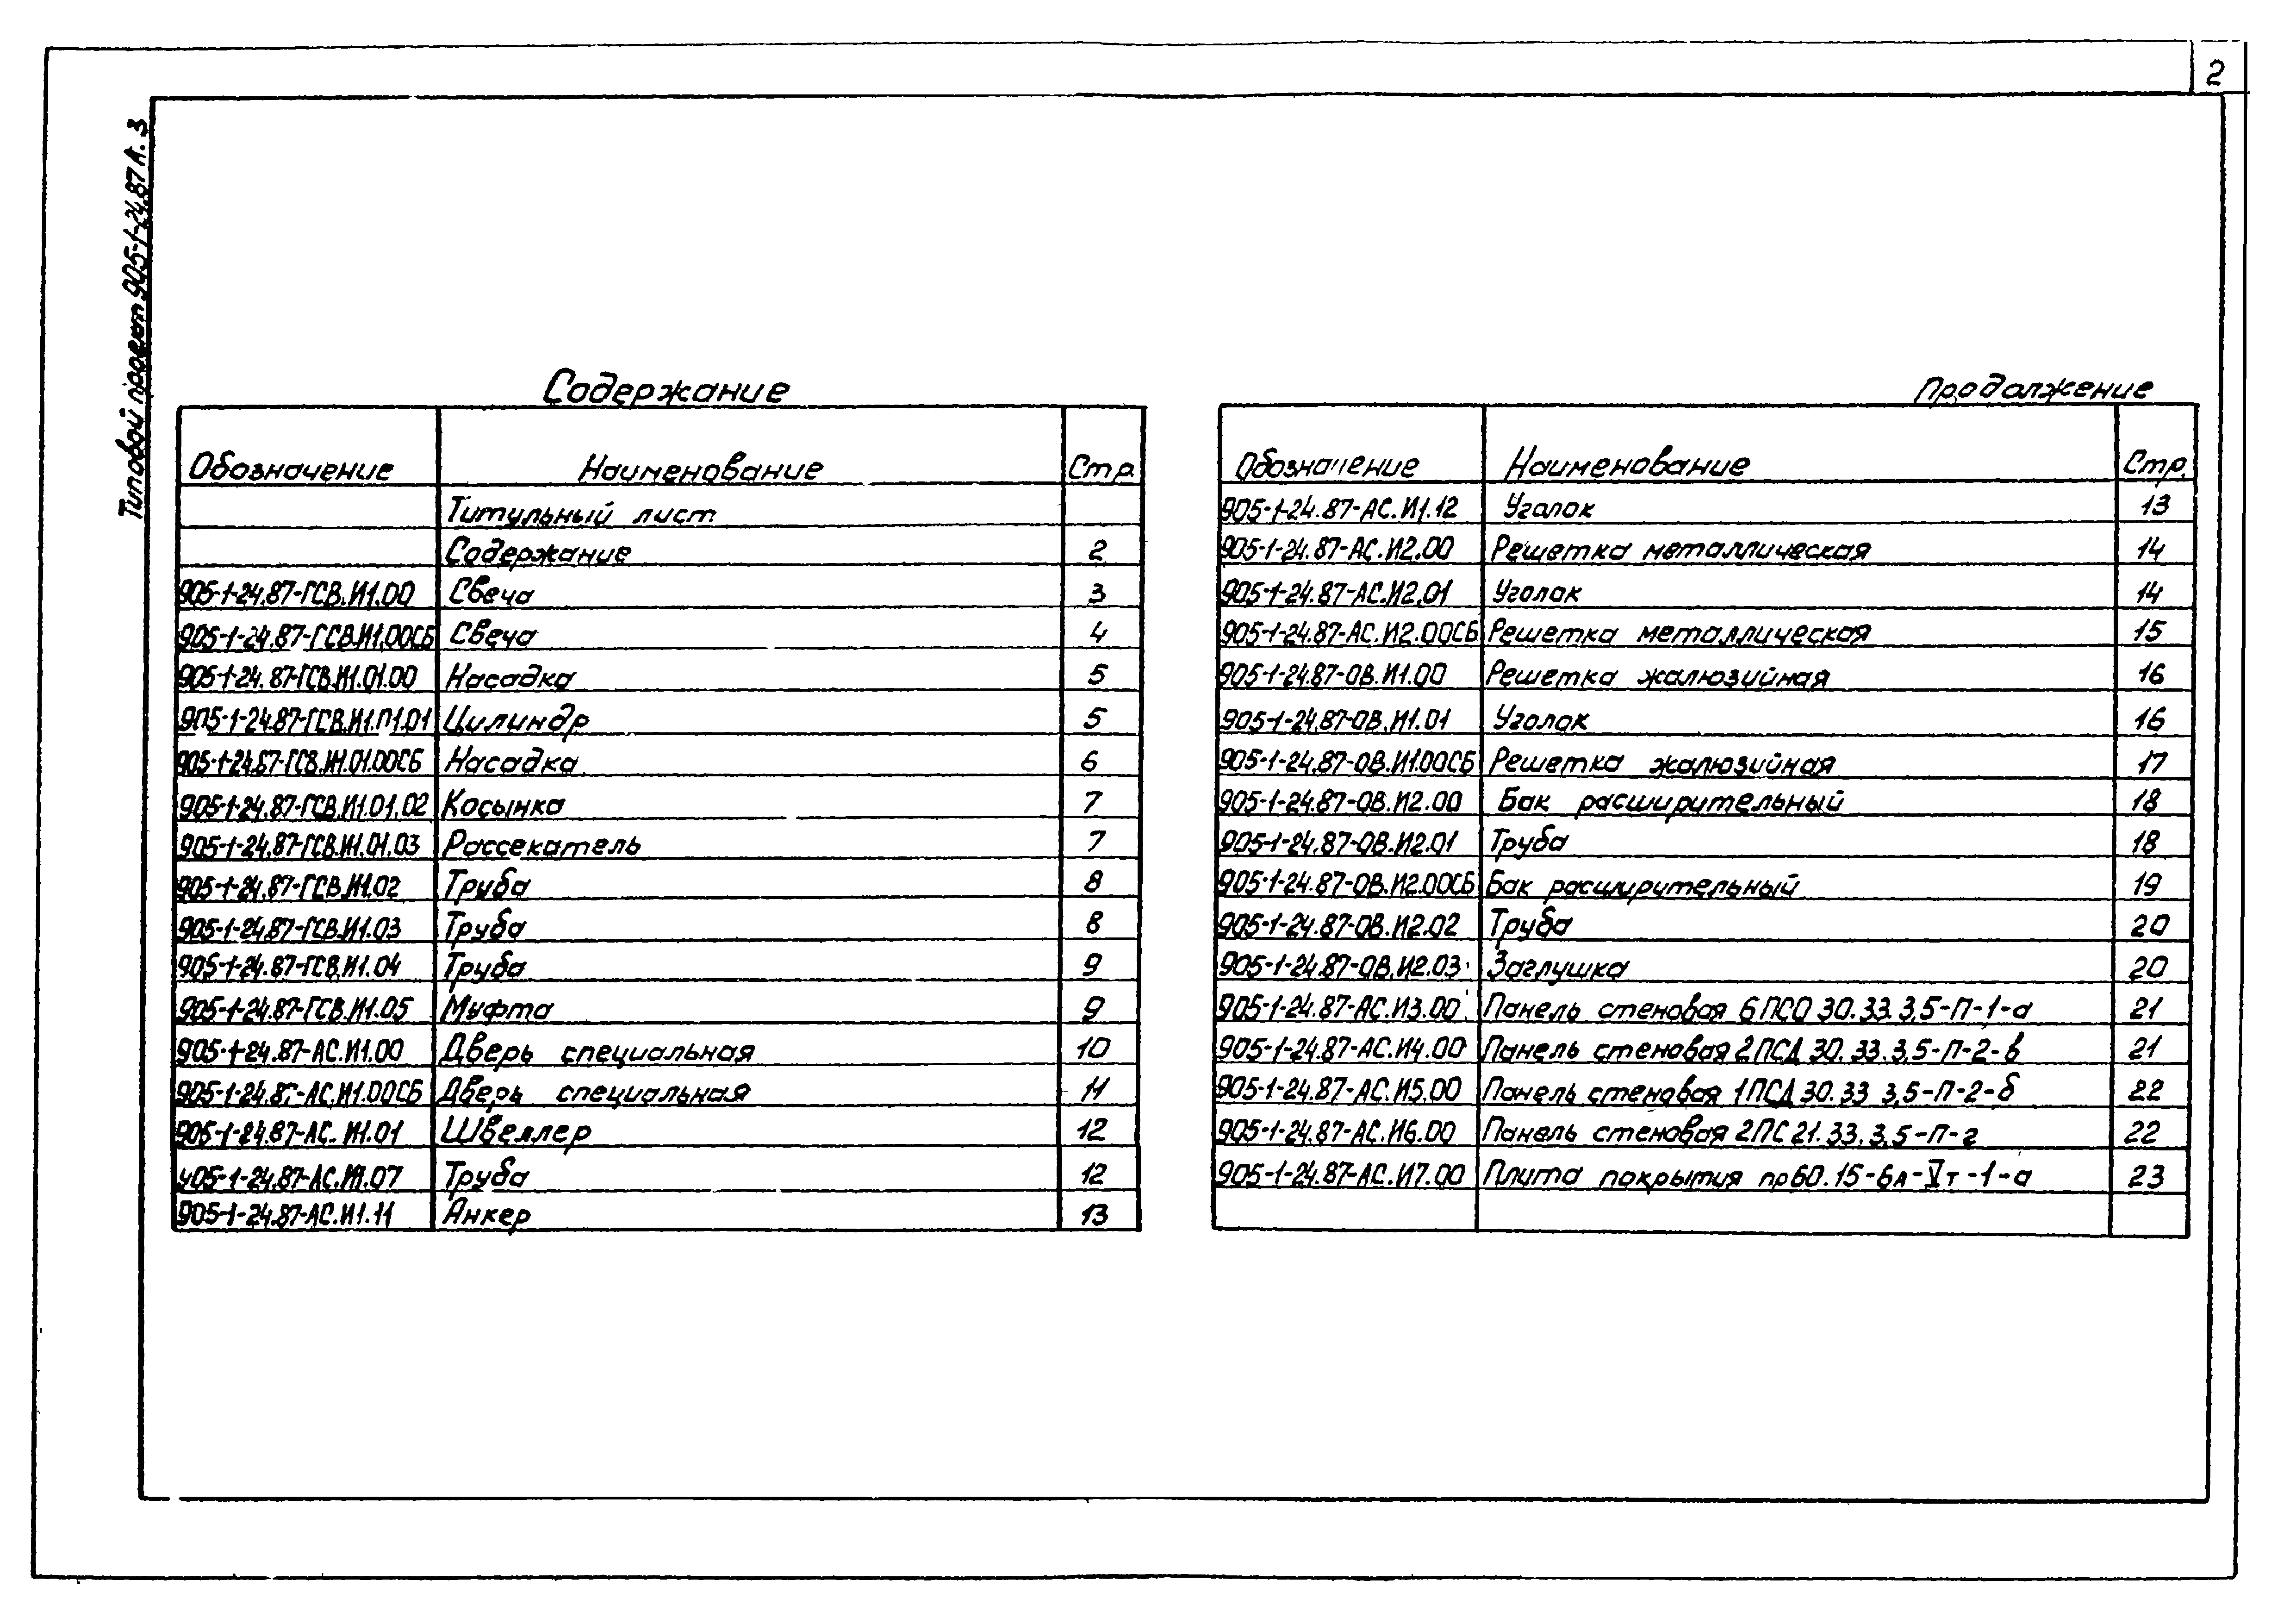 2
Типовой проект 905-1-24.87 А. 3
Содержание
Обозначение Наименование Стр
Титульный лист
Содержание 2
905-1-24.87-ГСВ.И1.00 Свеча 3
905-1-24.87-ГСВ.И1.00СБ Свеча 4
905-1-24.87-ГСВ.И1.01.00 Насадка 5
905-1-24.87-ГСВ.И1.01.01 Цилиндр 5
905-1-24.87-ГСВ.И1.01.00СБ Насадка 6
905-1-24.87-ГСВ.И1.01.02 Косынка 7
905-1-24.87-ГСВ.И1.01.03 Рассекатель 7
905-1-24.87-ГСВ.И1.02 Труба 8
905-1-24.87-ГСВ.И1.03 Труба 8
905-1-24.87-ГСВ.И1.04 Труба 9
905-1-24.87-ГСВ.И1.05 Муфта 9
905-1-24.87-АС.И1.00 Дверь специальная 10
905-1-24.87-АС.И1.00СБ Дверь специальная 11
905-1-24.87-АС.И1.01 Швеллер 12
905-1-24.87-АС.И1.07 Труба 12
905-1-24.87-АС.И1.11 Анкер 13
Продолжение
Обозначение Наименование Стр.
905-1-24.87-АС.И1.12 Уголок 13
905-1-24.87-АС.И2.00 Решетка металлическая 14
905-1-24.87-АС.И2.01 Уголок 14
905-1-24.87-АС.И2.00СБ Решетка металлическая 15
905-1-24.87-ОВ.И1.00 Решетка жалюзийная 16
905-1-24.87-ОВ.И1.01 Уголок 16
905-1-24.87-ОВ.И1.00СБ Решетка жалюзийная 17
905-1-24.87-ОВ.И2.00 Бак расширительный 18
905-1-24.87-ОВ.И2.01 Труба 18
905-1-24.87-ОВ.И2.00СБ Бак расширительный 19
905-1-24.87-ОВ.И2.02 Труба 20
905-1-24.87-ОВ.И2.03 Заглушка 20
905-1-24.87-АС.И3.00 Панель стеновая 6ПСО 30.33.3,5-П-1-а 21
905-1-24.87-АС.И4.00 Панель стеновая 2ПСД 30.33.3,5-П-2-в 21
905-1-24.87-АС.И5.00 Панель стеновая 1ПСД 30.33 3,5-П-2-б 22
905-1-24.87-АС.И6.00 Панель стеновая 2ПС 21.33.3,5-П-г 22
905-1-24.87-АС.И7.00 Плита покрытия пр60.15-6А-Vт-1-а 23